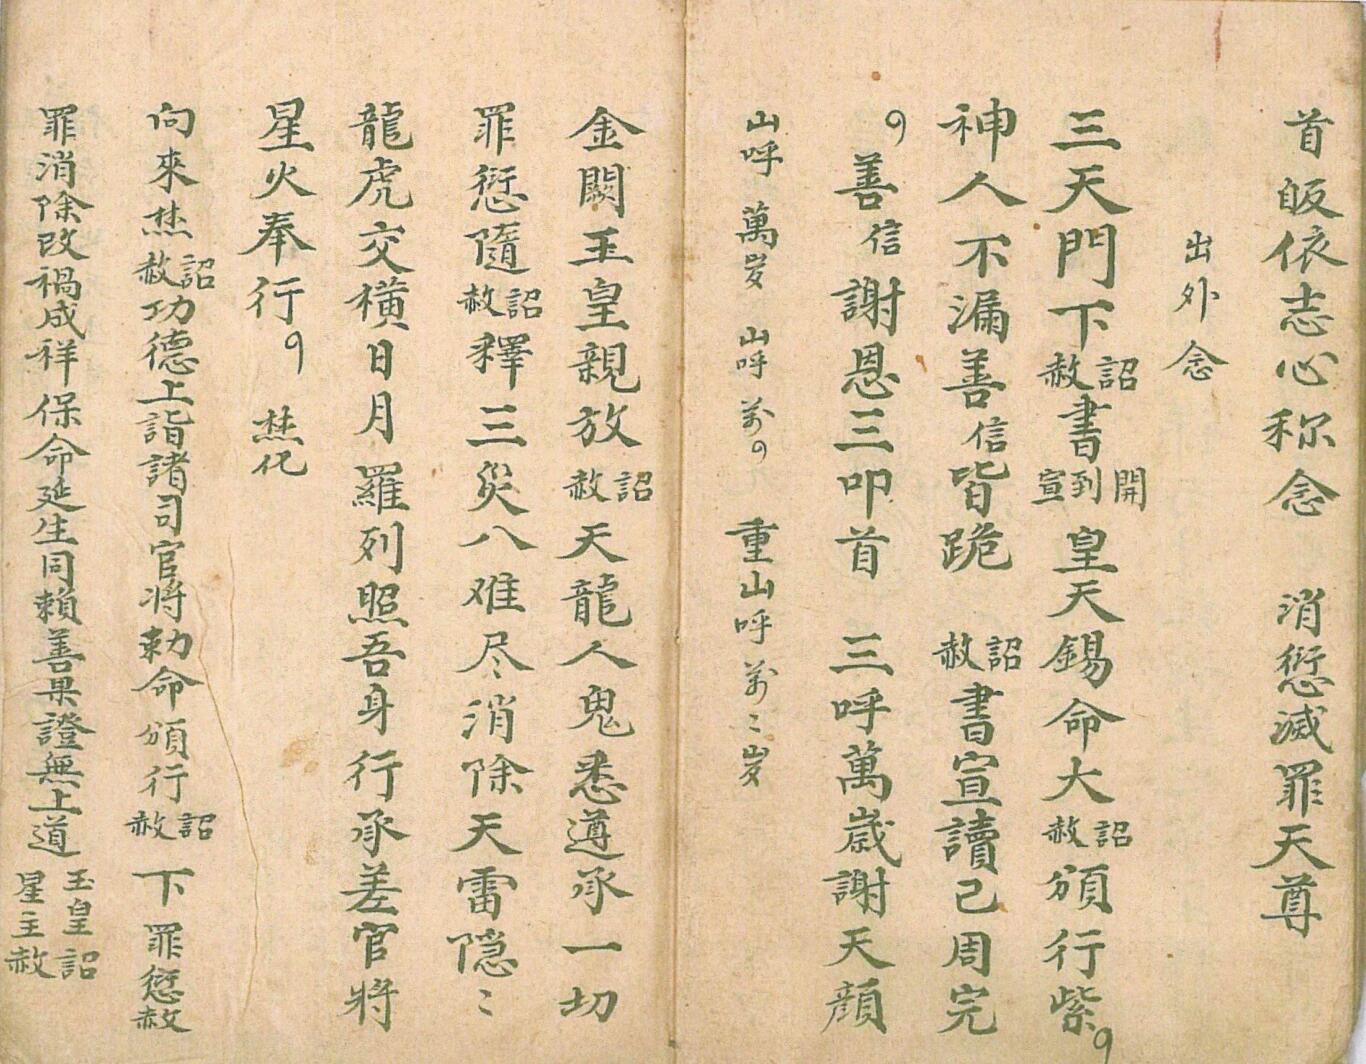 首皈依志心称念 消愆滅罪天尊
出外念
三天門下詔赦書開到宣皇天錫命大詔赦頒行紫
神人不漏善信皆跪 詔赦書宣讀已周完
善信謝恩三叩首 三呼萬歲謝天顏
山呼 萬岁 山呼 万 重山呼 万〻岁
金闕玉皇親放詔赦天龍人鬼悉遵承一切
罪愆隨詔赦釋三災八难尽消除天雷隠〻
龍虎交橫日月羅列照吾身行承差官将
星火奉行 焚化
向來焚詔赦功德上詣諸司官将勅命頒行詔赦下罪愆赦
罪消除改禍成祥保命延生同賴善果證無上道玉皇詔星主赦